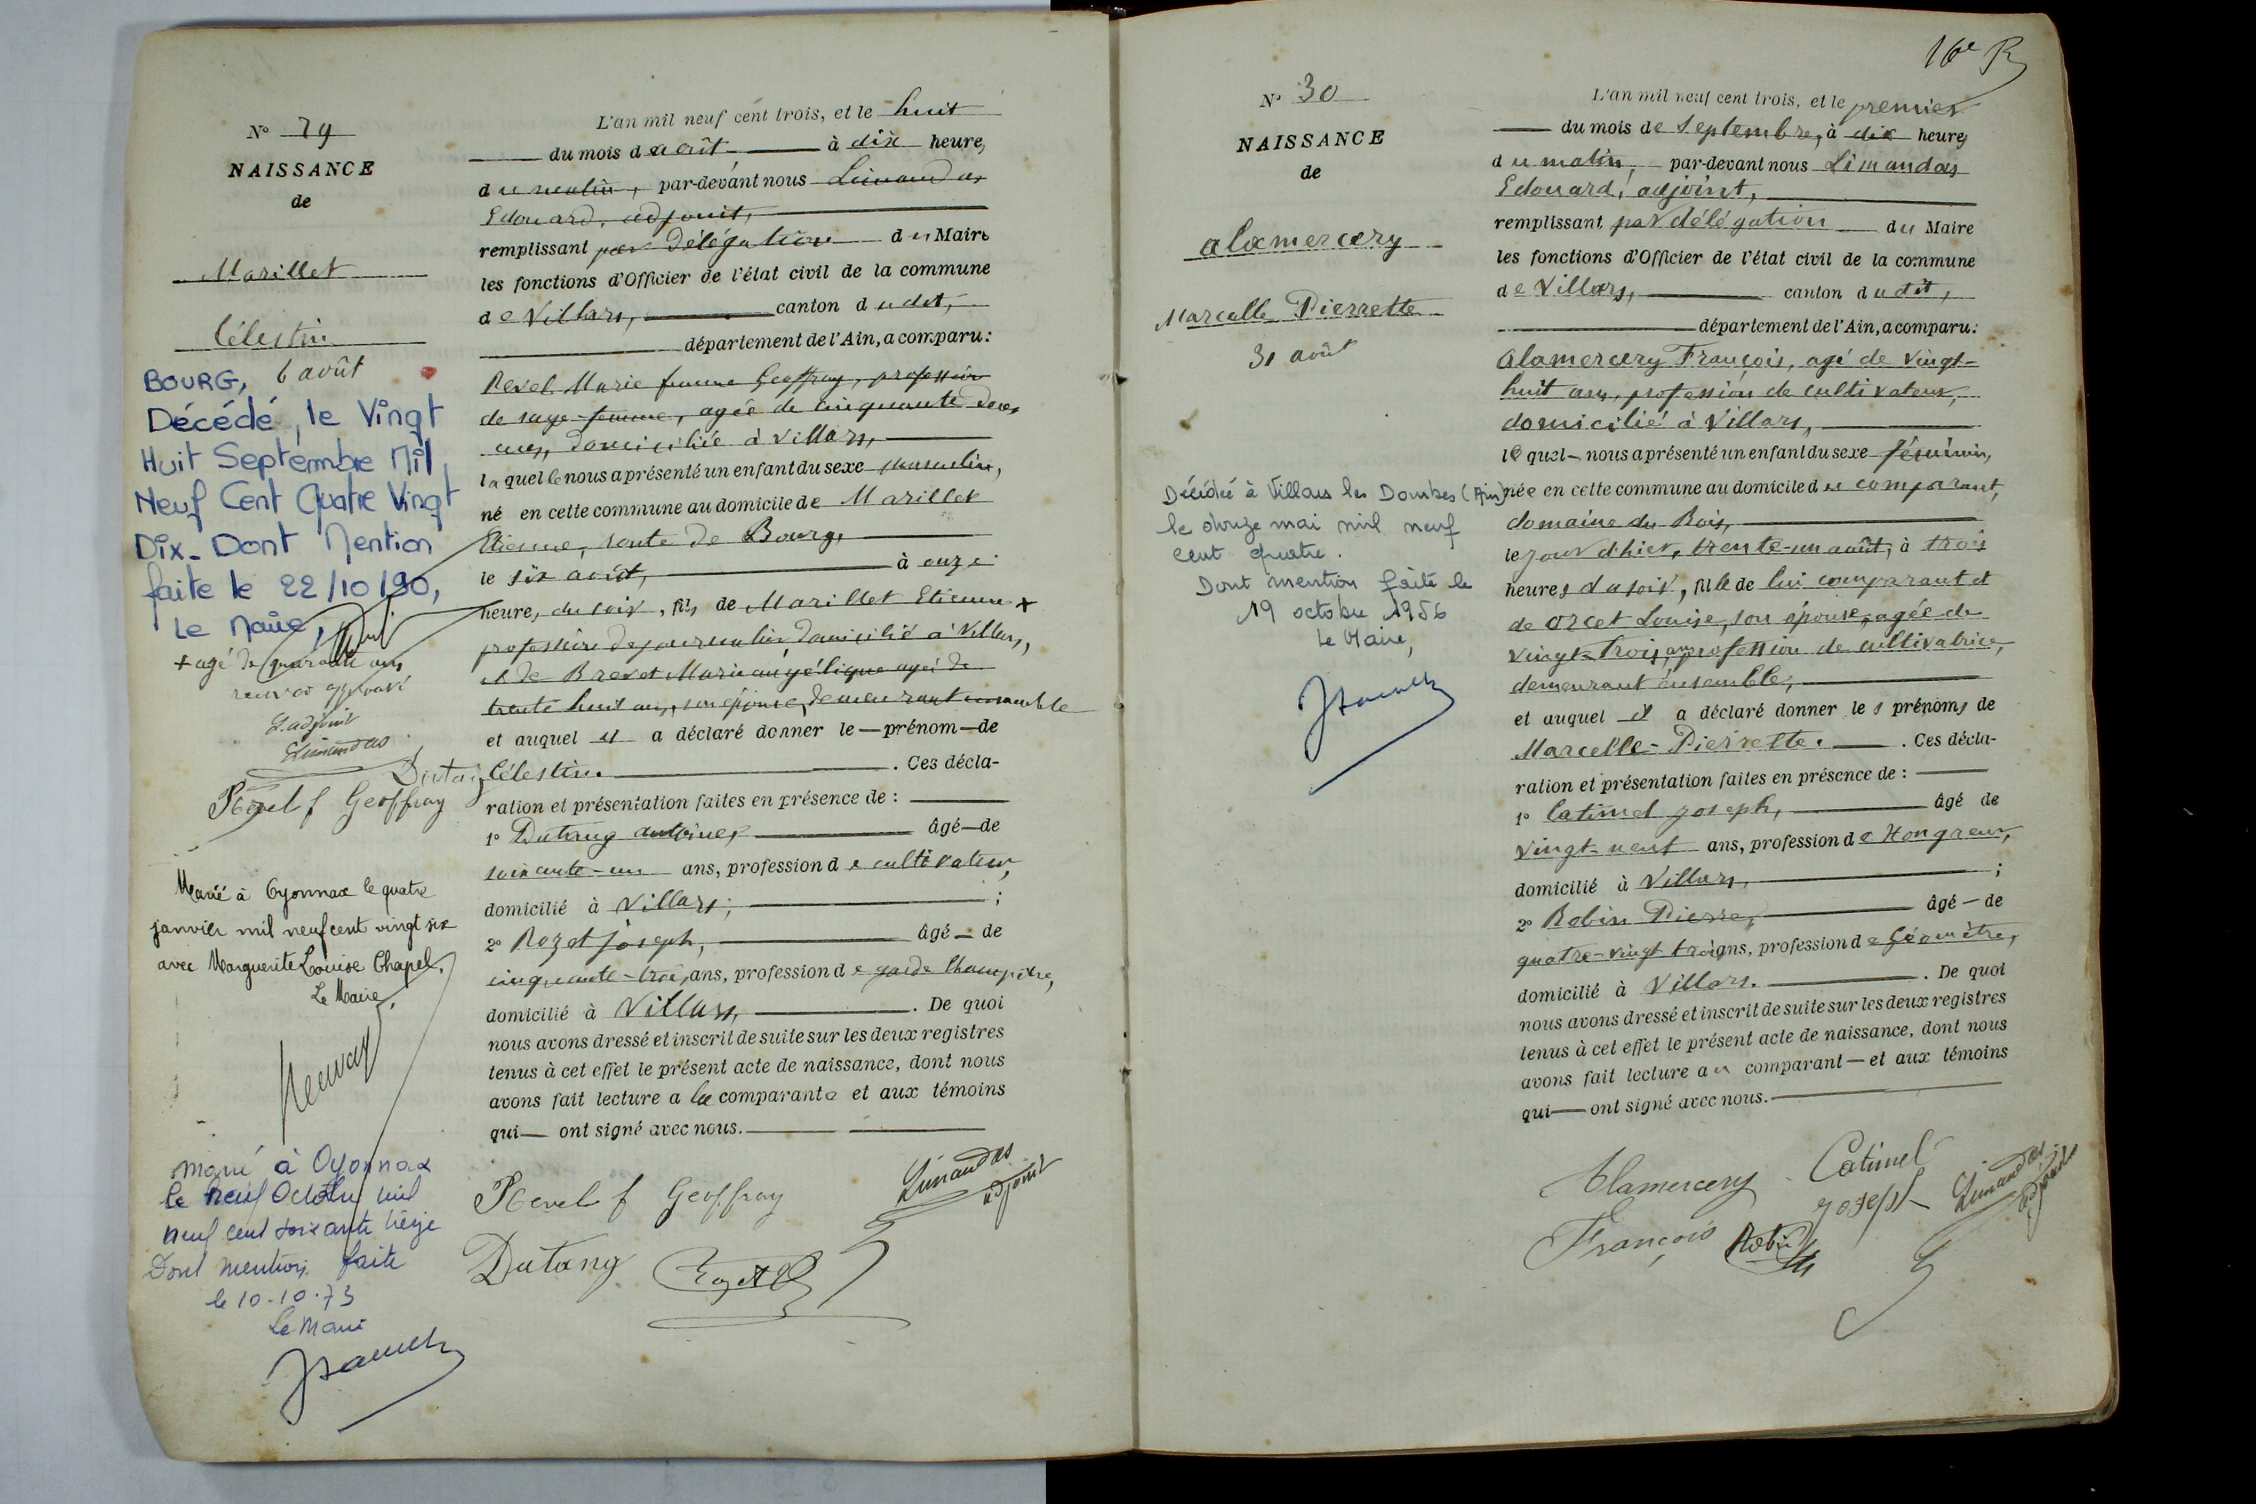 N° 29
NAISSANCE
de
Marillet
Célestin
6 août
BOURG,
Décédé, le Vingt
Huit Septembre Mil
Neuf Cent Quatre Vingt
Dix_ Dont Mention
faite le 22/10/90,
Le Maire,
+ agé de quarante ans
renvoi approuvé
L'adjoint
Limandas
Dutang
Revel f Geoffray
Marié à Oyonnax le quatre
janvier mil neuf cent vingt six
avec Marguerite Louise Chapel.
Le Maire,
Marié à Oyonnax
le neuf Octobre mil
neuf cent soixante treize
Dont mention faite
le 10-10-73
Le Maire
L'an mil neuf cent trois, et le huit
du mois d'août à dix heures
du matin, par-devant nous Limandas
Edouard, adjoint,
remplissant par délégation du Maire
les fonctions d'Officier de l'état civil de la commune
de Villars, canton dudit,
département de l'Ain, a comparu:
Revel Marie femme Geoffray, profession
de sage-femme, agée de cinquante deux
ans, domiciliée à Villars,
laquelle nous a présenté un enfant du sexe masculin,
né en cette commune au domicile de Marillet
Etienne, route de Bourg,
le six août, à onze
heures du soir, fils de Marillet Etienne +
profession de journalier domicilié à Villars,
et de Brevet Marie angélique agée de
trente huit ans, son épouse, demeurant ensemble
et auquel el a déclaré donner le — prénom — de
Célestin. Ces décla-
ration et présentation faites en présence de :
1° Dutang antoine, âgé — de
soixante-un ans, profession de cultivateur,
domicilié à Villars; ;
2° Rozet Joseph, âgé — de
cinquante-trois ans, profession de garde Champêtre,
domicilié à Villars, . De quoi
nous avons dressé et inscrit de suite sur les deux registres
tenus à cet effet le présent acte de naissance, dont nous
avons fait lecture a la comparante et aux témoins
qui — ont signé avec nous.
Revel f Geoffray
Limandas
adjoint
Dutang
Rozet
16e R
N° 30
NAISSANCE
de
alamercery
Marcelle Pierrette
31 août
Décédée à Villars les Dombes (Ain)
le douze mai mil neuf
cent quatre.
Dont mention faite le
19 octobre 1956
Le Maire,
L'an mil neuf cent trois, et le premier
du mois de Septembre, à dix heures
du matin, par-devant nous Limandas
Edouard, adjoint,
remplissant par délégation du Maire
les fonctions d'Officier de l'état civil de la commune
de Villars, canton dudit,
département de l'Ain, a comparu:
Alamercery François, agé de vingt-
huit ans, profession de cultivateur,
domicilié à Villars,
lequel — nous a présenté un enfant du sexe féminin,
née en cette commune au domicile du comparant,
domaine du Bois,
le jour d'hier, trente-un août, à trois
heures du soir, fille de lui comparant et
de Orcet Louise, son épouse, agée de
vingt-trois ans, profession de cultivatrice,
demeurant ensemble,
et auquel il a déclaré donner les prénoms de
Marcelle-Pierrette. . Ces décla-
ration et présentation faites en présence de :
1° Catimel Joseph, âgé de
vingt-neuf ans, profession de Hongreur,
domicilié à Villars, ;
2° Robin Pierre, âgé — de
quatre-vingt trois ans, profession de Géomètre,
domicilié à Villars. . De quoi
nous avons dressé et inscrit de suite sur les deux registres
tenus à cet effet le présent acte de naissance, dont nous
avons fait lecture au comparant — et aux témoins
qui — ont signé avec nous.
Alamercery
François
Catimel
Joseph
Robin
Limandas
adjoint